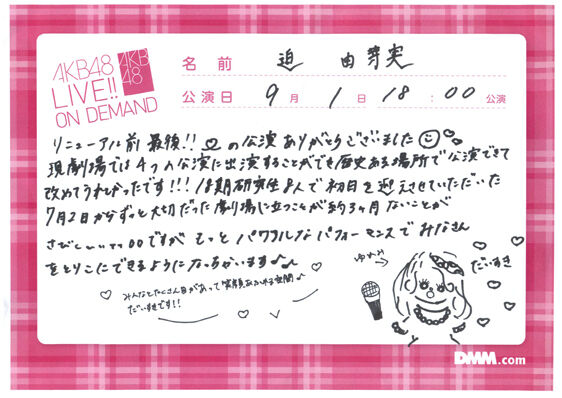 AKB48
LIVE!!
ON DEMAND
AKB
48
名前 迫 由芽実
公演日 9月 1日 18:00 公演
リニューアル前 最後!! ♡の公演 ありがとうございました
現劇場では4つの公演に出演することができ歴史ある場所で公演できて
改めてうれしかったです!!! 18期研究生8人で初日を迎えさせていただいた
7月2日からずっと大切だった劇場に立つことが約3ヶ月ないことが
さびしい ですが もっと パワフルな パフォーマンスで みなさん
をとりこにできるようになっちゃいます♪
みんなとたくさん目があって笑顔あふれる空間♪
だいすきです!!
ゆめみ
だいすき
DMM.com